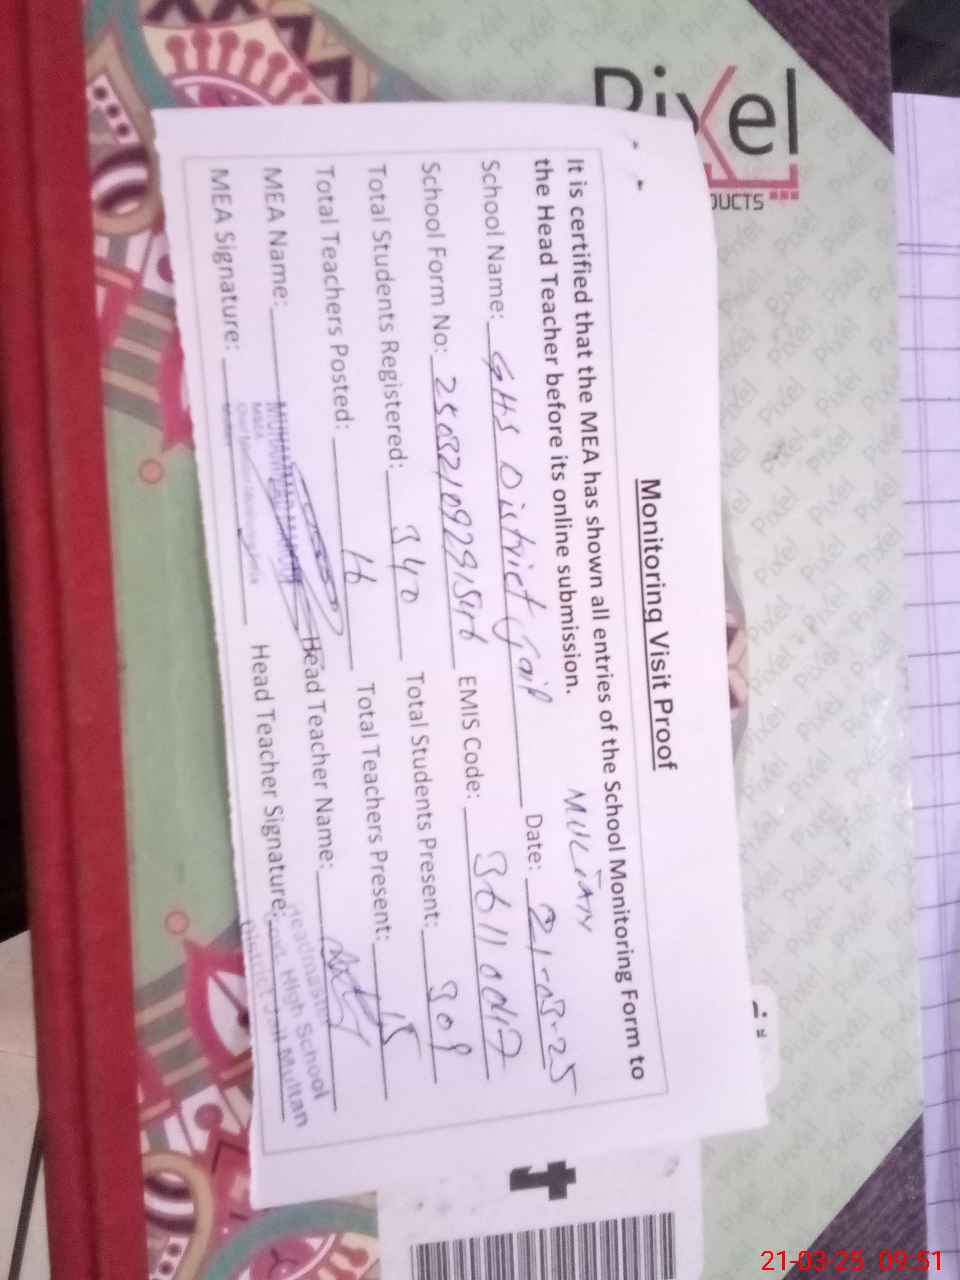 Pixel
PRODUCTS
Monitoring Visit Proof
It is certified that the MEA has shown all entries of the School Monitoring Form to
the Head Teacher before its online submission.
MULTAN
School Name: GHS District Jail Date: 21-03-25
School Form No: EMIS Code:
Total Students Registered: 340 Total Students Present: 309
Total Teachers Posted: 16 Total Teachers Present: 15
MEA Name: Head Teacher Name:
MEA Signature: Head Teacher Signature:
Headmaster
Govt. High School
District Jail Multan
21-03-25 09:51